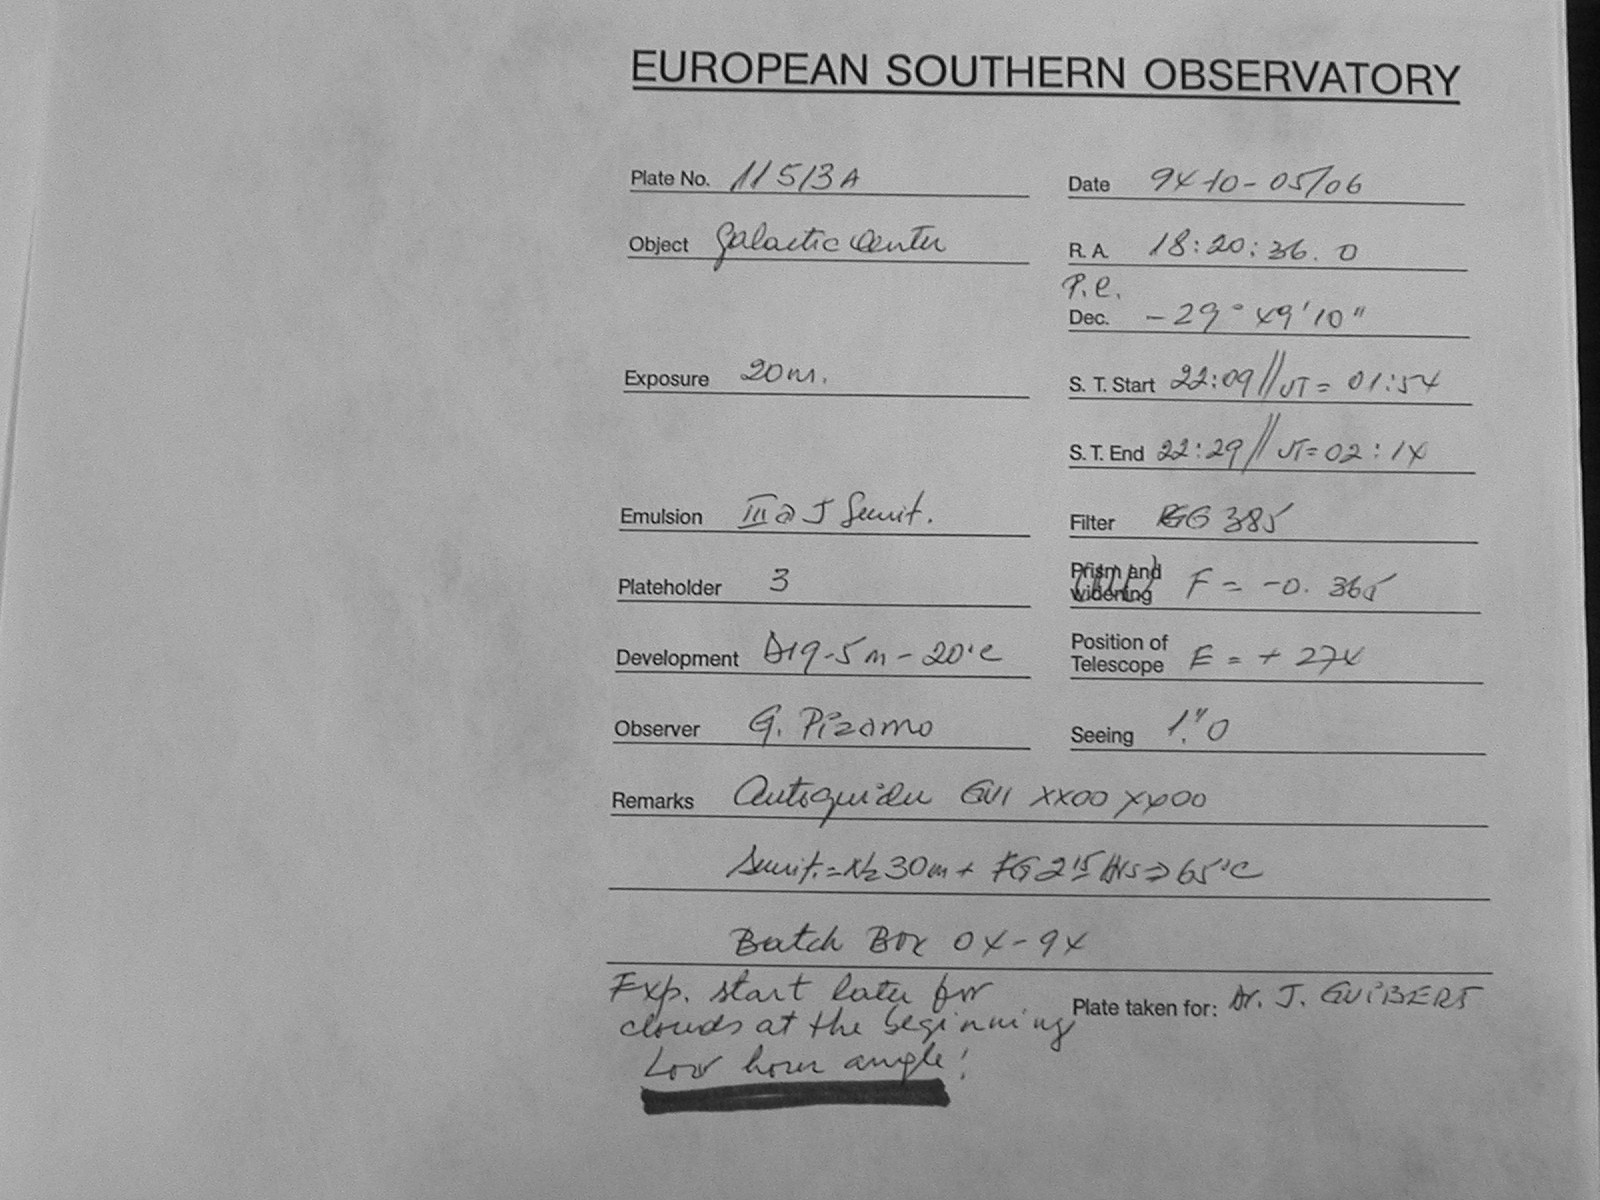 EUROPEAN SOUTHERN OBSERVATORY
Plate No. 11513A
Date 94-10-05/06
Object Galactic Center
R. A. 18:20:36.0
P.e.
Dec. -29° 49' 10"
Exposure 20m.
S. T. Start 22:09 // UT = 01:54
S. T. End 22:29 // UT = 02:14
Emulsion IIIaJ Sensit.
Filter GG 385
Plateholder 3
Prism and widening F = -0.365
Development D19-5m-20°C
Position of Telescope E = + 274
Observer G. Pizarro
Seeing 1."0
Remarks Autoguider GUI XX00 YY00
Sensit. = N2 30m + FG 2 15 Hrs => 65°C
Batch Box 04-94
Exp. start later for
clouds at the beginning
Low hour angle!
Plate taken for: Dr. J. GUIBERT